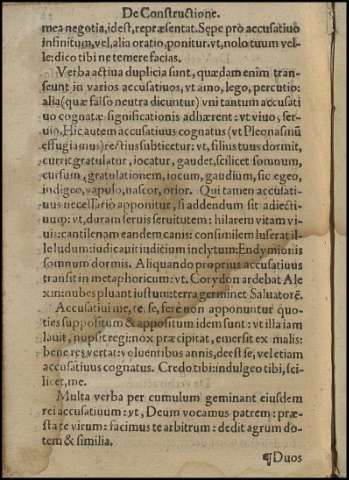 De Constructione.
mea negotia, idest, repræsentat. Sępe prò accusatiuo
infinitum, vel, alia oratio, ponitur. vt, nolo tuum vel-
le: dico tibi ne temere facias.
Verba actiua duplicia sunt, quædam enim tran-
seunt in varios accusatiuos, vt amo, lego, percutio:
alia (quæ falso neutra dicuntur) vni tantum accusati
uo cognatæ significationis adhærent: vt viuo, ser-
uio. Hic autem accusatiuus cognatus (vt Pleonasmũ
effugiamus) rectius subticetur: vt, filius tuus dormit,
currit gratulatur, iocatur, gaudet, scilicet somnum,
cursum, gratulationem, iocum, gaudium, sic egeo,
indigeo, vapulo, nascor, orior. Qui tamen accusati-
uus necessario apponitur, si addendum sit adiecti-
uum: vt, duram seruis seruitutem: hilarem vitam vi-
uis: cantilenam eandem canis: consimilem luserat il-
le ludum: iudicauit iudicium inclytum: Endymionis
somnum dormis. Aliquando proprius accusatiuus
transit in metaphoricum: vt, Corydon ardebat Ale
xin: nubes pluant iustum: terra germinet Saluatorẽ.
Accusatiui me, te, se, ferè non apponuntur quo-
ties suppositum & appositum idem sunt: vt illa iam
lauit, nupsit regi: nox præcipitat, emersit ex malis:
bene res vertat: voluentibus annis, deest se, vel etiam
accusatiuus cognatus. Credo tibi: indulgeo tibi, sci-
licet, me.
Multa verba per cumulum geminant eiusdem
rei accusatiuum: vt, Deum vocamus patrem: præ-
sta te virum: facimus te arbitrum: dedit agrum do-
tem & similia.
¶Duos